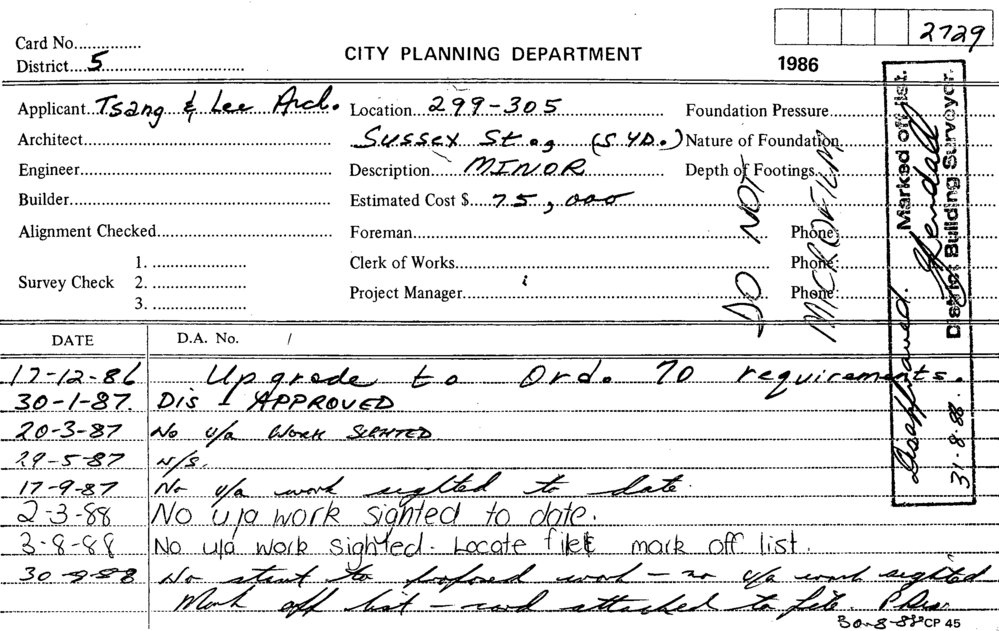 2729
Card No...............
District....5
CITY PLANNING DEPARTMENT
1986
Applicant Tsang & Lee Arch. Location 299-305 Foundation Pressure
Architect Sussex St. (SYD.) Nature of Foundation
Engineer Description MINOR Depth of Footings
Builder Estimated Cost $ 75,000
Alignment Checked Foreman Phone:
Clerk of Works Phone:
Survey Check 1. 2. 3.
Project Manager Phone:
DO NOT
MICROFILM
Marked off list.
Disapproved. Kendall
District Building Surveyor.
31-8-88
DATE D.A. No. /
17-12-86 Upgrade to Ord. 70 requirements.
30-1-87. Dis APPROVED
20-3-87 No u/a WORK SIGHTED
29-5-87 N/S.
17-9-87 No u/a work sighted to date.
2-3-88 No u/a work sighted to date.
3-8-88 No u/a work sighted. Locate file mark off list.
30-8-88 No start to proposed work – no u/a work sighted
Mark off list – card attached to file.
30-8-88 CP 45